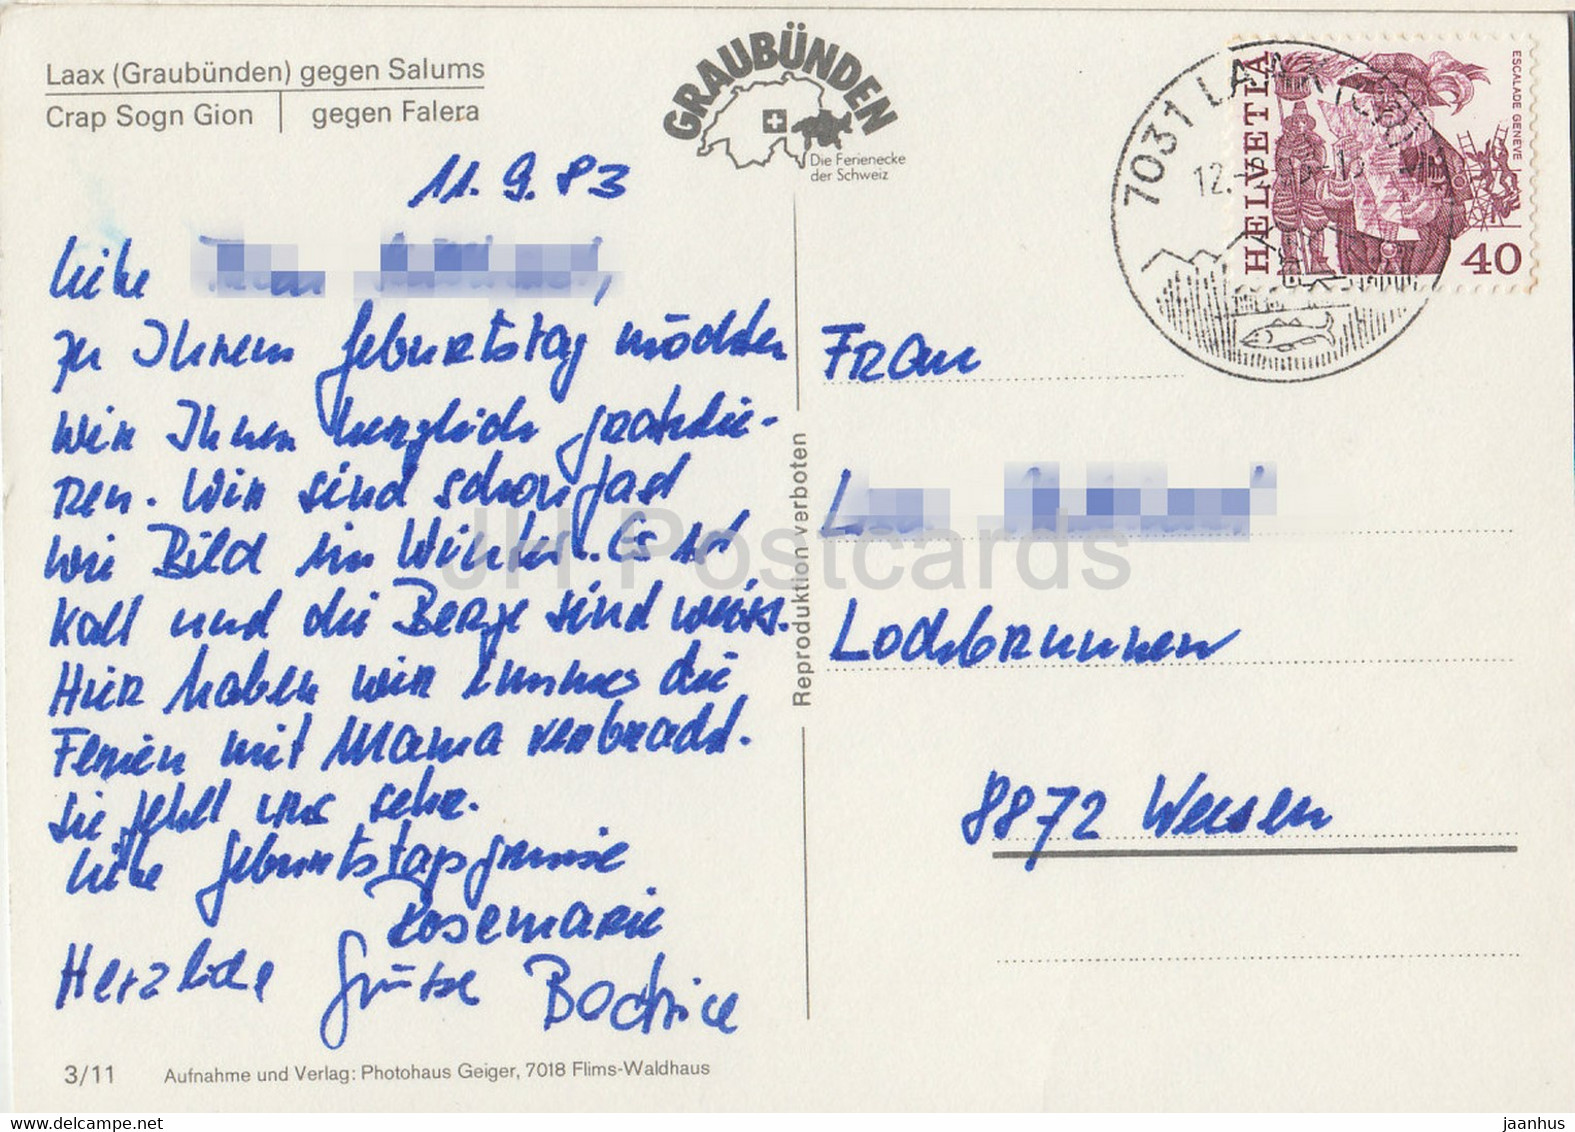 Laax (Graubünden) gegen Salums
Crap Sogn Gion gegen Falera
GRAUBÜNDEN
Die Ferienecke
der Schweiz
7031 LAAX (GR)
12.-
HELVETIA
ESCALADE GENEVE
40
11.9.83
Liebe
zu Ihrem Geburtstag möchten
wir Ihnen herzlich gratulie-
ren. Wir sind schon fast
wie Bild im Winter. Es ist
kalt und die Berge sind weiss.
Hier haben wir immer die
Ferien mit Mama verbracht.
Sie fehlt uns sehr.
Liebe Geburtstagsgrüsse
Rosemarie
Herzliche Grüsse Beatrice
Frau
Lochbrunnen
8872 Weesen
Reproduktion verboten
3/11 Aufnahme und Verlag: Photohaus Geiger, 7018 Flims-Waldhaus
JH Postcards
jaanhus